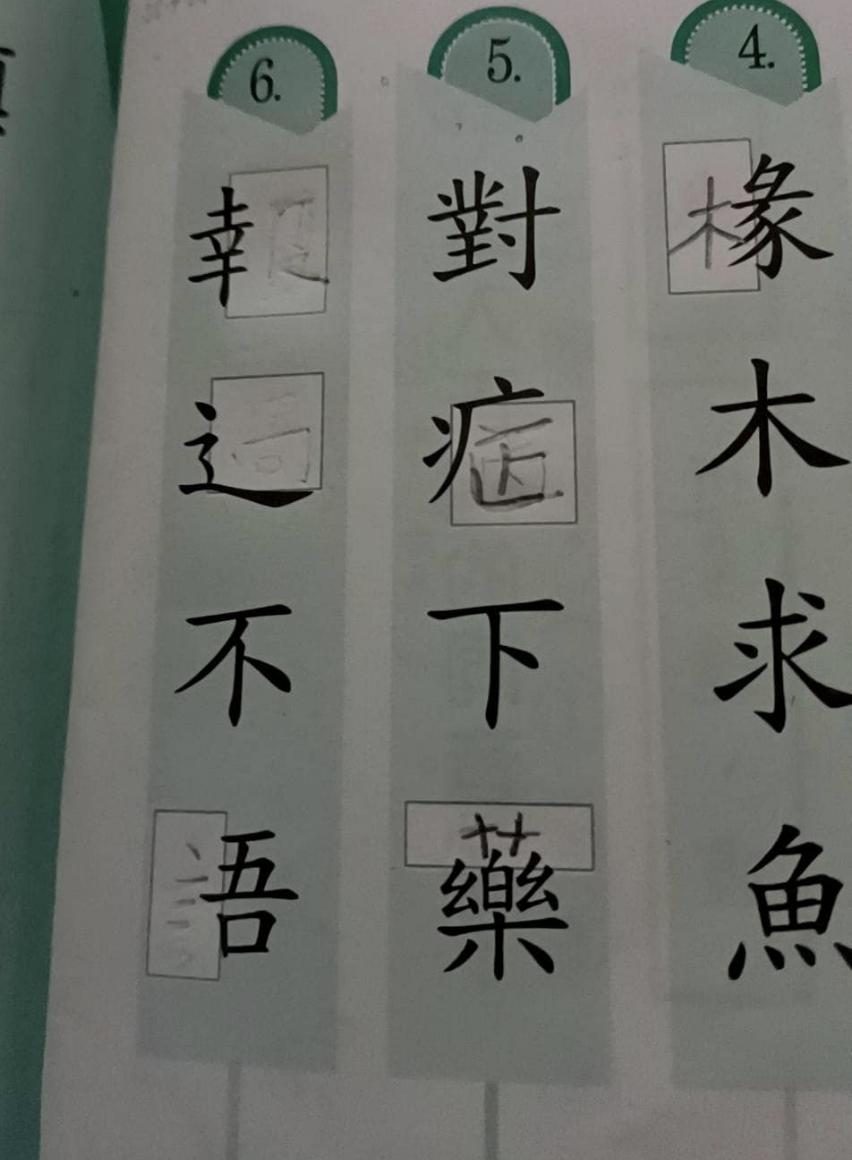 4.
椽木求魚
5.
對下藥
6.
報過不語